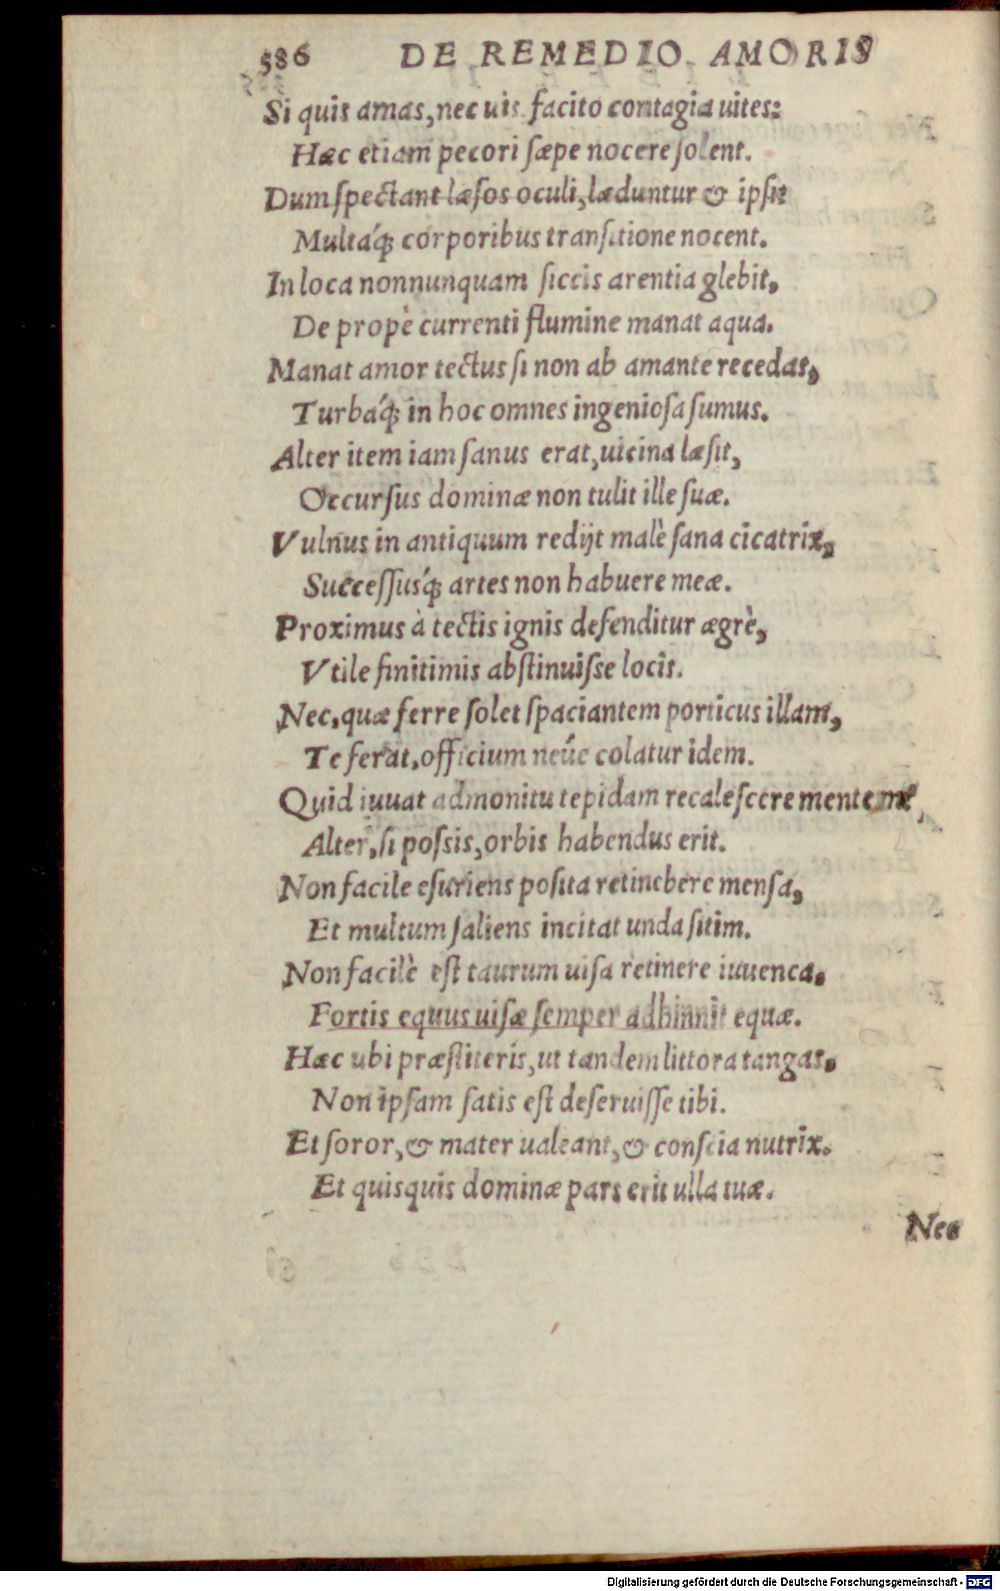 586 DE REMEDIO AMORIS
Si quis amas, nec uis. facito contagia uites:
Hæc etiam pecori sæpe nocere solent.
Dum spectant læsos oculi, læduntur & ipsi:
Multaq́; corporibus transitione nocent.
In loca nonnunquam siccis arentia glebit,
De propè currenti flumine manat aqua.
Manat amor tectus si non ab amante recedas,
Turbaq́; in hoc omnes ingeniosa sumus.
Alter item iam sanus erat, uicina læsit,
Occursus dominæ non tulit ille suæ.
Vulnus in antiquum redijt malè sana cicatrix,
Successusq́; artes non habuere meæ.
Proximus à tectis ignis defenditur ægrè,
Vtile finitimis abstinuisse locis.
Nec, quæ ferre solet spaciantem porticus illam,
Te ferat, officium neúe colatur idem.
Quid iuuat admonitu tepidam recalescere mentem?
Alter, si possis, orbis habendus erit.
Non facile esuriens posita retinebere mensa,
Et multum saliens incitat unda sitim.
Non facilè est taurum uisa retinere iuuenca.
Fortis equus uisæ semper adhinnit equæ.
Hæc ubi præstiteris, ut tandem littora tangas.
Non ipsam satis est deseruisse tibi.
Et soror, & mater ualeant, & conscia nutrix.
Et quisquis dominæ pars erit ulla tuæ.
Nec
Digitalisierung gefördert durch die Deutsche Forschungsgemeinschaft - DFG